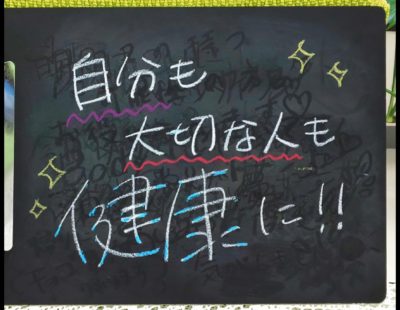 自分も
大切な人も
健康に!!